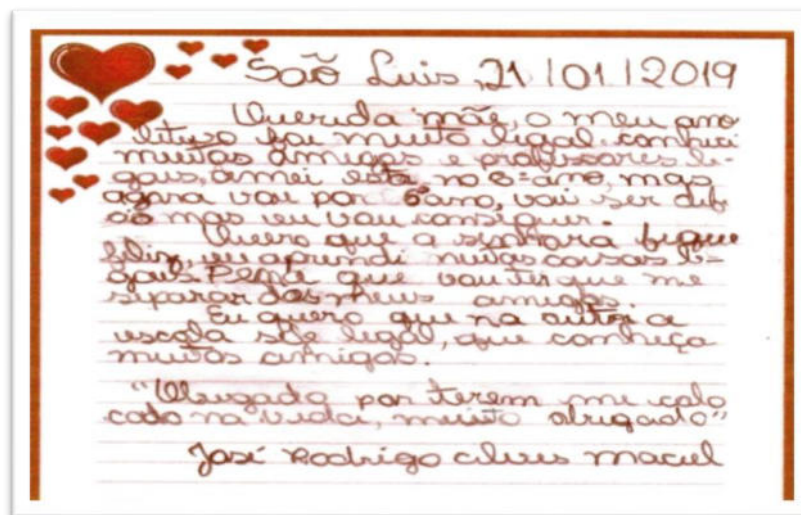 São Luis, 21/01/2019
Querida mãe, o meu ano
letivo foi muito legal. conheci
muitas amigas e professores le-
gais, amei esta no 6º ano, mas
agora vou por 6º ano, vai ser difi
cio mas eu vou conseguir.
Quero que a senhora fique
feliz, eu aprendi muitas coisas le-
gais. Pena que vou ter que me
separar dos meus amigos.
Eu quero que na outra
escola seja legal, que conheça
muitos amigos.
"Obrigado por terem me colo
cado na vida, muito obrigado"
José Rodrigo Alves Maciel